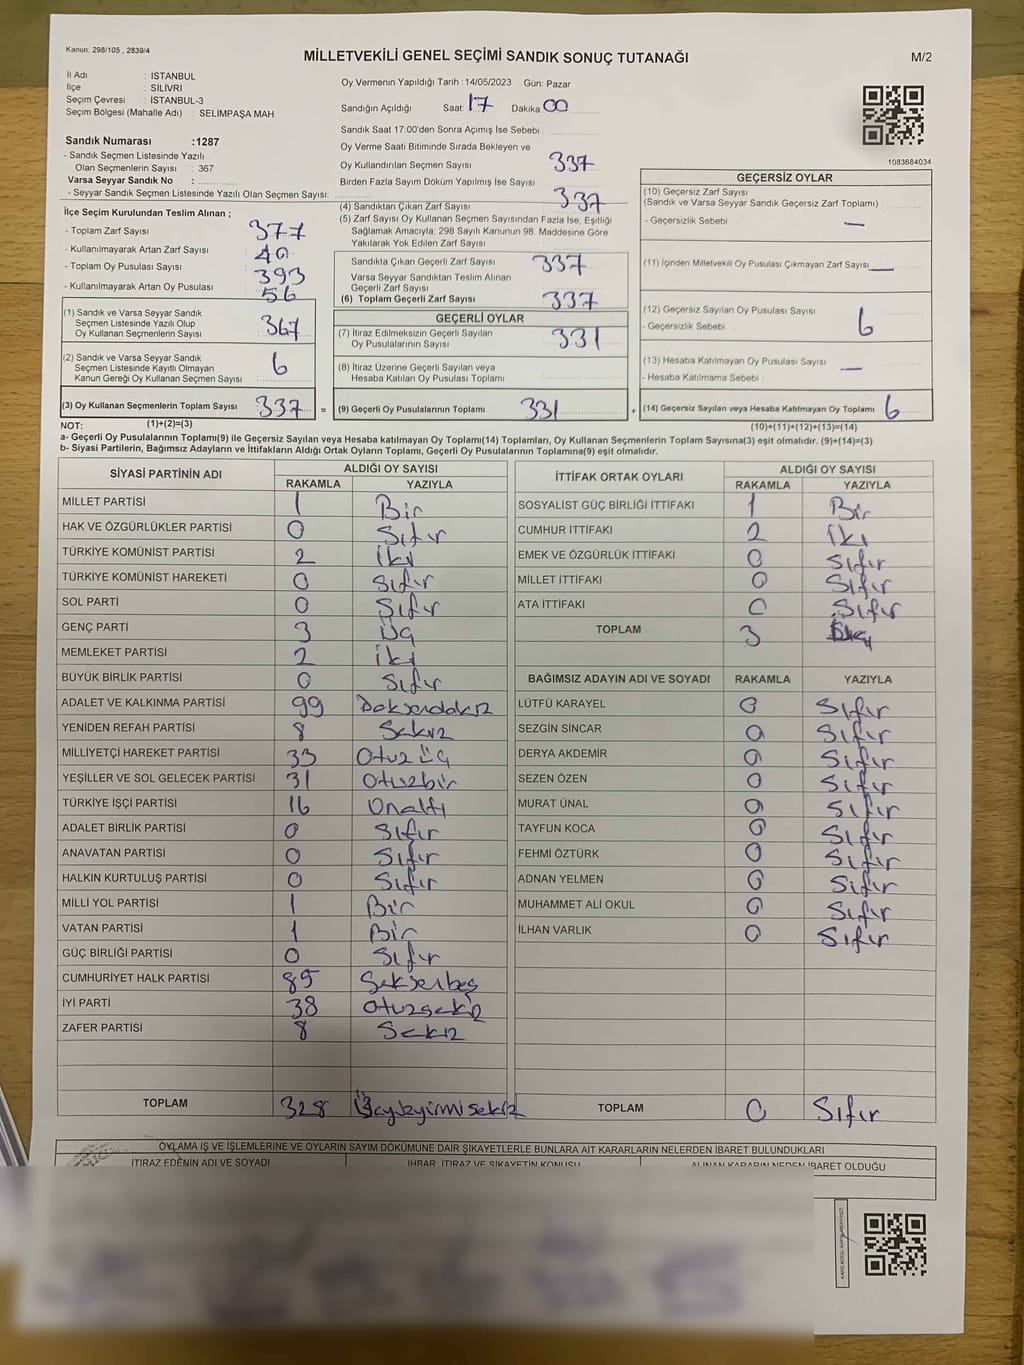 Kanun: 298/105 , 2839/4
MİLLETVEKİLİ GENEL SEÇİMİ SANDIK SONUÇ TUTANAĞI
M/2
İl Adı : İSTANBUL
İlçe : SİLİVRİ
Seçim Çevresi : İSTANBUL-3
Seçim Bölgesi (Mahalle Adı) : SELİMPAŞA MAH.
Sandık Numarası :1287
- Sandık Seçmen Listesinde Yazılı
Olan Seçmenlerin Sayısı : 367
Varsa Seyyar Sandık No :
- Seyyar Sandık Seçmen Listesinde Yazılı Olan Seçmen Sayısı:
İlçe Seçim Kurulundan Teslim Alınan ;
- Toplam Zarf Sayısı 377
- Kullanılmayarak Artan Zarf Sayısı 40
- Toplam Oy Pusulası Sayısı 393
- Kullanılmayarak Artan Oy Pusulası 56
(1) Sandık ve Varsa Seyyar Sandık
Seçmen Listesinde Yazılı Olup
Oy Kullanan Seçmenlerin Sayısı 367
(2) Sandık ve Varsa Seyyar Sandık
Seçmen Listesinde Kayıtlı Olmayan
Kanun Gereği Oy Kullanan Seçmen Sayısı 6
(3) Oy Kullanan Seçmenlerin Toplam Sayısı 337 =
Oy Vermenin Yapıldığı Tarih :14/05/2023 Gün: Pazar
Sandığın Açıldığı Saat 17 Dakika 00
Sandık Saat 17:00'den Sonra Açımış İse Sebebi :
Oy Verme Saati Bitiminde Sırada Bekleyen ve
Oy Kullandırılan Seçmen Sayısı 337
Birden Fazla Sayım Döküm Yapılmış İse Sayısı
(4) Sandıktan Çıkan Zarf Sayısı 337
(5) Zarf Sayısı Oy Kullanan Seçmen Sayısından Fazla İse, Eşitliği
Sağlamak Amacıyla; 298 Sayılı Kanunun 98. Maddesine Göre
Yakılarak Yok Edilen Zarf Sayısı :
Sandıkta Çıkan Geçerli Zarf Sayısı 337
Varsa Seyyar Sandıktan Teslim Alınan
Geçerli Zarf Sayısı
(6) Toplam Geçerli Zarf Sayısı 337
GEÇERLİ OYLAR
(7) İtiraz Edilmeksizin Geçerli Sayılan
Oy Pusulalarının Sayısı 331
(8) İtiraz Üzerine Geçerli Sayılan veya
Hesaba Katılan Oy Pusulası Toplamı
(9) Geçerli Oy Pusulalarının Toplamı 331 +
1083684034
GEÇERSİZ OYLAR
(10) Geçersiz Zarf Sayısı
(Sandık ve Varsa Seyyar Sandık Geçersiz Zarf Toplamı)
- Geçersizlik Sebebi : —
(11) İçinden Milletvekili Oy Pusulası Çıkmayan Zarf Sayısı —
(12) Geçersiz Sayılan Oy Pusulası Sayısı
- Geçersizlik Sebebi : 6
(13) Hesaba Katılmayan Oy Pusulası Sayısı —
- Hesaba Katılmama Sebebi :
(14) Geçersiz Sayılan veya Hesaba Katılmayan Oy Toplamı 6
NOT: (1)+(2)=(3) (10)+(11)+(12)+(13)=(14)
a- Geçerli Oy Pusulalarının Toplamı(9) ile Geçersiz Sayılan veya Hesaba katılmayan Oy Toplamı(14) Toplamları, Oy Kullanan Seçmenlerin Toplam Sayısına(3) eşit olmalıdır. (9)+(14)=(3)
b- Siyasi Partilerin, Bağımsız Adayların ve İttifakların Aldığı Oyların Toplamı, Geçerli Oy Pusulalarının Toplamına(9) eşit olmalıdır.
SİYASİ PARTİNİN ADI ALDIĞI OY SAYISI
RAKAMLA YAZIYLA
MİLLET PARTİSİ 1 Bir
HAK VE ÖZGÜRLÜKLER PARTİSİ 0 Sıfır
TÜRKİYE KOMÜNİST PARTİSİ 2 İki
TÜRKİYE KOMÜNİST HAREKETİ 0 Sıfır
SOL PARTİ 0 Sıfır
GENÇ PARTİ 3 Üç
MEMLEKET PARTİSİ 2 iki
BÜYÜK BİRLİK PARTİSİ 0 Sıfır
ADALET VE KALKINMA PARTİSİ 99
YENİDEN REFAH PARTİSİ 8 Sekiz
MİLLİYETÇİ HAREKET PARTİSİ 33 Otuz Üç
YEŞİLLER VE SOL GELECEK PARTİSİ 31 Otuzbir
TÜRKİYE İŞÇİ PARTİSİ 16 Onaltı
ADALET BİRLİK PARTİSİ 0 Sıfır
ANAVATAN PARTİSİ 0 Sıfır
HALKIN KURTULUŞ PARTİSİ 0 Sıfır
MİLLİ YOL PARTİSİ 1 Bir
VATAN PARTİSİ 1 Bir
GÜÇ BİRLİĞİ PARTİSİ 0 Sıfır
CUMHURİYET HALK PARTİSİ 85 Seksenbeş
İYİ PARTİ 38 Otuzsekiz
ZAFER PARTİSİ 8 Sekiz
TOPLAM 328 Üçyüzyirmisekiz
İTTİFAK ORTAK OYLARI ALDIĞI OY SAYISI
RAKAMLA YAZIYLA
SOSYALİST GÜÇ BİRLİĞİ İTTİFAKI 1 Bir
CUMHUR İTTİFAKI 2 İki
EMEK VE ÖZGÜRLÜK İTTİFAKI 0 Sıfır
MİLLET İTTİFAKI 0 Sıfır
ATA İTTİFAKI 0 Sıfır
TOPLAM 3
BAĞIMSIZ ADAYIN ADI VE SOYADI RAKAMLA YAZIYLA
LÜTFÜ KARAYEL 0 Sıfır
SEZGİN SİNCAR 0 Sıfır
DERYA AKDEMİR 0 Sıfır
SEZEN ÖZEN 0 Sıfır
MURAT ÜNAL 0 Sıfır
TAYFUN KOCA 0 Sıfır
FEHMİ ÖZTÜRK 0 Sıfır
ADNAN YELMEN 0 Sıfır
MUHAMMET ALİ OKUL 0 Sıfır
İLHAN VARLIK 0 Sıfır
TOPLAM 0 Sıfır
OYLAMA İŞ VE İŞLEMLERİNE VE OYLARIN SAYIM DÖKÜMÜNE DAİR ŞİKAYETLERLE BUNLARA AİT KARARLARIN NELERDEN İBARET BULUNDUKLARI
İTİRAZ EDENİN ADI VE SOYADI İHBAR, İTİRAZ VE ŞİKAYETİN KONUSU ALINAN KARARIN NEDEN İBARET OLDUĞU